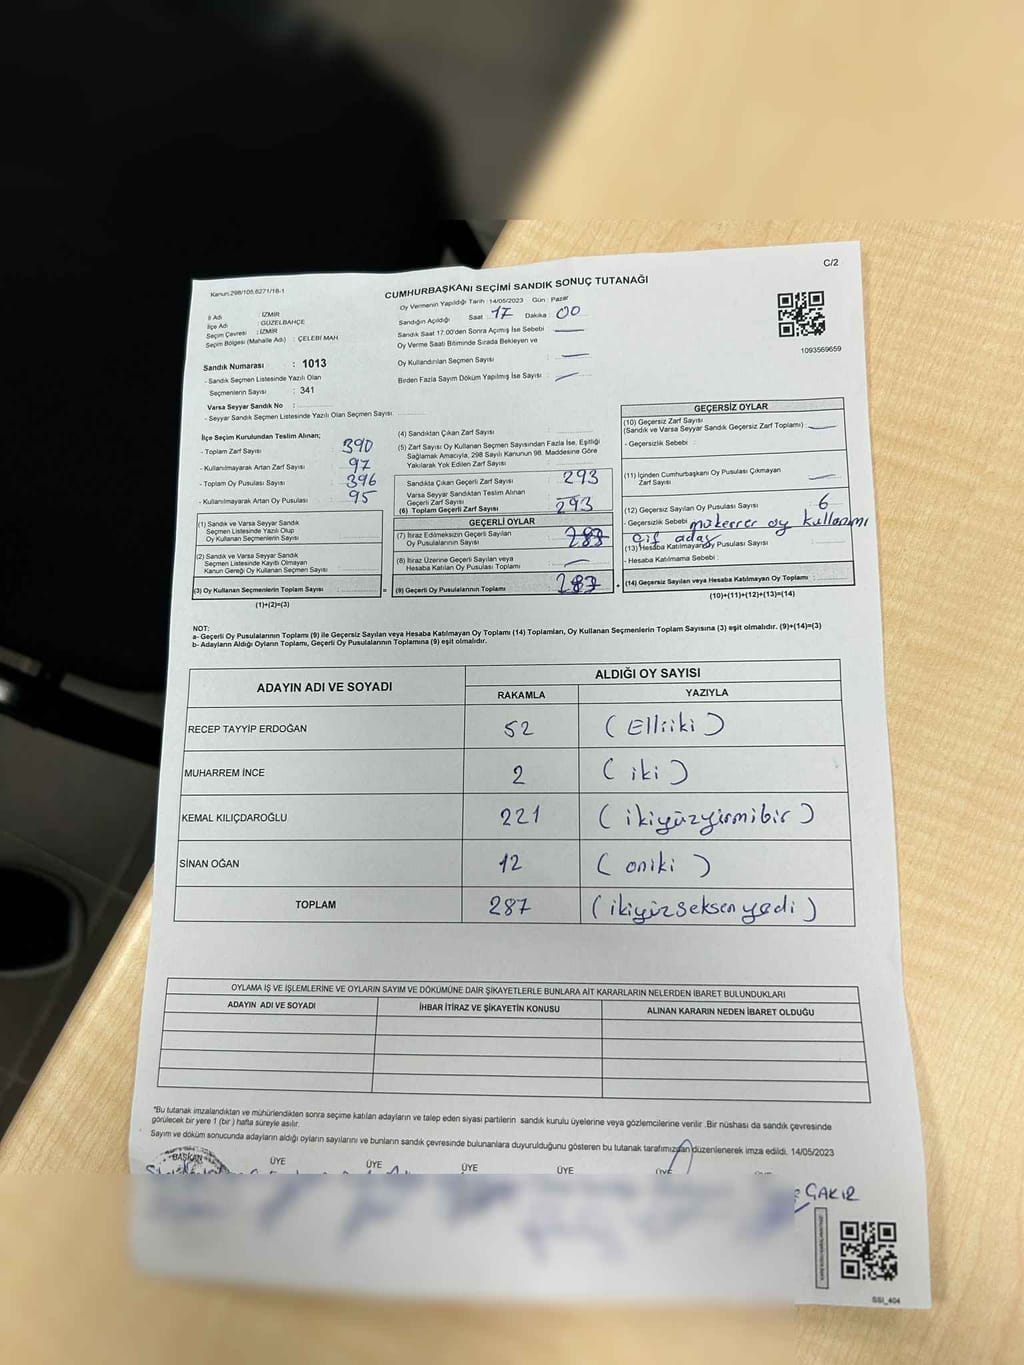 C/2
Kanun:298/105,6271/18-1
CUMHURBAŞKANI SEÇİMİ SANDIK SONUÇ TUTANAĞI
Oy Vermenin Yapıldığı Tarih : 14/05/2023 Gün : Pazar
İl Adı : İZMİR
İlçe Adı : GÜZELBAHÇE
Seçim Çevresi : İZMİR
Seçim Bölgesi (Mahalle Adı) : ÇELEBİ MAH
Sandığın Açıldığı Saat : 17 Dakika : 00
Sandık Saat 17:00'den Sonra Açılmış İse Sebebi
Oy Verme Saati Bitiminde Sırada Bekleyen ve
Oy Kullandırılan Seçmen Sayısı :
Birden Fazla Sayım Döküm Yapılmış İse Sayısı :
1093569659
Sandık Numarası : 1013
- Sandık Seçmen Listesinde Yazılı Olan
Seçmenlerin Sayısı : 341
Varsa Seyyar Sandık No :
- Seyyar Sandık Seçmen Listesinde Yazılı Olan Seçmen Sayısı:
İlçe Seçim Kurulundan Teslim Alınan;
- Toplam Zarf Sayısı : 390
- Kullanılmayarak Artan Zarf Sayısı : 97
- Toplam Oy Pusulası Sayısı : 396
- Kullanılmayarak Artan Oy Pusulası : 95
(1) Sandık ve Varsa Seyyar Sandık
Seçmen Listesinde Yazılı Olup
Oy Kullanan Seçmenlerin Sayısı :
(2) Sandık ve Varsa Seyyar Sandık
Seçmen Listesinde Kayıtlı Olmayan
Kanun Gereği Oy Kullanan Seçmen Sayısı :
(3) Oy Kullanan Seçmenlerin Toplam Sayısı : =
(1)+(2)=(3)
(4) Sandıktan Çıkan Zarf Sayısı :
(5) Zarf Sayısı Oy Kullanan Seçmen Sayısından Fazla İse, Eşitliği
Sağlamak Amacıyla, 298 Sayılı Kanunun 98. Maddesine Göre
Yakılarak Yok Edilen Zarf Sayısı :
Sandıkta Çıkan Geçerli Zarf Sayısı : 293
Varsa Seyyar Sandıktan Teslim Alınan
Geçerli Zarf Sayısı :
(6) Toplam Geçerli Zarf Sayısı : 293
GEÇERLİ OYLAR
(7) İtiraz Edilmeksizin Geçerli Sayılan
Oy Pusulalarının Sayısı : 287
(8) İtiraz Üzerine Geçerli Sayılan veya
Hesaba Katılan Oy Pusulası Toplamı :
(9) Geçerli Oy Pusulalarının Toplamı : 287 +
GEÇERSİZ OYLAR
(10) Geçersiz Zarf Sayısı
(Sandık ve Varsa Seyyar Sandık Geçersiz Zarf Toplamı) :
- Geçersizlik Sebebi :
(11) İçinden Cumhurbaşkanı Oy Pusulası Çıkmayan
Zarf Sayısı :
(12) Geçersiz Sayılan Oy Pusulası Sayısı : 6
- Geçersizlik Sebebi : mükerrer oy kullanımı
çif aday
(13) Hesaba Katılmayan Oy Pusulası Sayısı :
- Hesaba Katılmama Sebebi :
(14) Geçersiz Sayılan veya Hesaba Katılmayan Oy Toplamı :
(10)+(11)+(12)+(13)=(14)
NOT:
a- Geçerli Oy Pusulalarının Toplamı (9) ile Geçersiz Sayılan veya Hesaba Katılmayan Oy Toplamı (14) Toplamları, Oy Kullanan Seçmenlerin Toplam Sayısına (3) eşit olmalıdır. (9)+(14)=(3)
b- Adayların Aldığı Oyların Toplamı, Geçerli Oy Pusulalarının Toplamına (9) eşit olmalıdır.
ADAYIN ADI VE SOYADI
ALDIĞI OY SAYISI
RAKAMLA YAZIYLA
RECEP TAYYİP ERDOĞAN 52 (Elliiki)
MUHARREM İNCE 2 (iki)
KEMAL KILIÇDAROĞLU 221 (ikiyüzyirmibir)
SİNAN OĞAN 12 (oniki)
TOPLAM 287 (ikiyüzseksenyedi)
OYLAMA İŞ VE İŞLEMLERİNE VE OYLARIN SAYIM VE DÖKÜMÜNE DAİR ŞİKAYETLERLE BUNLARA AİT KARARLARIN NELERDEN İBARET BULUNDUKLARI
ADAYIN ADI VE SOYADI İHBAR İTİRAZ VE ŞİKAYETİN KONUSU ALINAN KARARIN NEDEN İBARET OLDUĞU
*Bu tutanak imzalandıktan ve mühürlendikten sonra seçime katılan adayların ve talep eden siyasi partilerin sandık kurulu üyelerine veya gözlemcilerine verilir .Bir nüshası da sandık çevresinde
görülecek bir yere 1 (bir ) hafta süreyle asılır.
Sayım ve döküm sonucunda adayların aldığı oyların sayılarını ve bunların sandık çevresinde bulunanlara duyurulduğunu gösteren bu tutanak tarafımızdan düzenlenerek imza edildi. 14/05/2023
BAŞKAN ÜYE ÜYE ÜYE ÜYE ÜYE
ÇAKIR
SSI_404